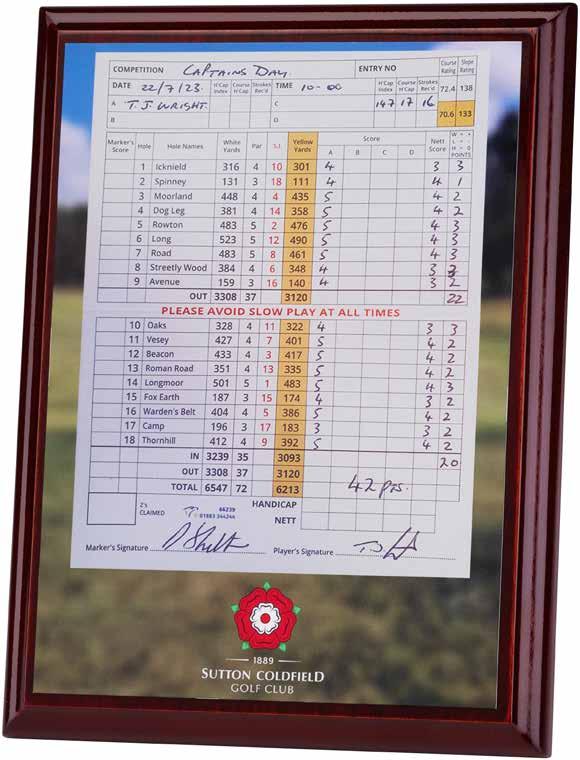 COMPETITION CAPTAINS DAY. ENTRY NO Course Rating Slope Rating
DATE 22/7/23 H'Cap Index Course H'Cap Strokes Rec'd TIME 10-00 H'Cap Index Course H'Cap Strokes Rec'd 72.4 138
A T.J WRIGHT. C 147 17 16
B D 70.6 133
Marker's Score Hole Hole Names White Yards Par S.I. Yellow Yards Score A B C D Nett Score W = + L = - H = 0 POINTS
1 Icknield 316 4 10 301 4 3 3
2 Spinney 131 3 18 111 4 4 1
3 Moorland 448 4 4 435 5 4 2
4 Dog Leg 381 4 14 358 5 4 2
5 Rowton 483 5 2 476 5 4 3
6 Long 523 5 12 490 5 4 3
7 Road 483 5 8 461 5 4 3
8 Streetly Wood 384 4 6 348 4 3 3
9 Avenue 159 3 16 140 4 3 2
OUT 3308 37 3120 22
PLEASE AVOID SLOW PLAY AT ALL TIMES
10 Oaks 328 4 11 322 4 3 3
11 Vesey 427 4 7 401 5 4 2
12 Beacon 433 4 3 417 5 4 2
13 Roman Road 351 4 13 335 5 4 2
14 Longmoor 501 5 1 483 5 4 3
15 Fox Earth 187 3 15 174 4 3 2
16 Warden's Belt 404 4 5 386 5 4 2
17 Camp 196 3 17 183 3 3 2
18 Thornhill 412 4 9 392 5 4 2
IN 3239 35 3093 20
OUT 3308 37 3120
TOTAL 6547 72 6213 42 pts.
2's CLAIMED 66239 01883 344244 HANDICAP
NETT
Marker's Signature Player's Signature
1889
SUTTON COLDFIELD
GOLF CLUB